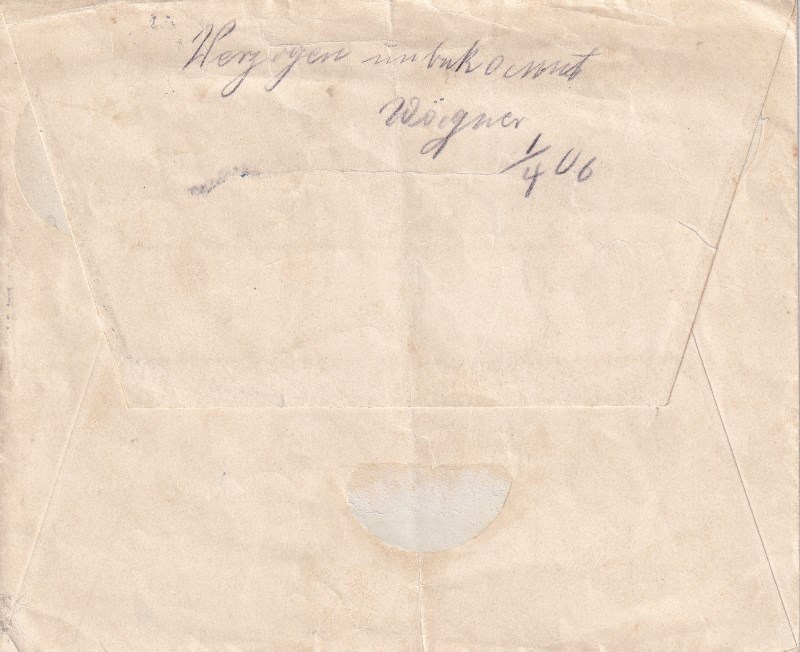 Verzogen unbekannt
Wögner
1/4 06